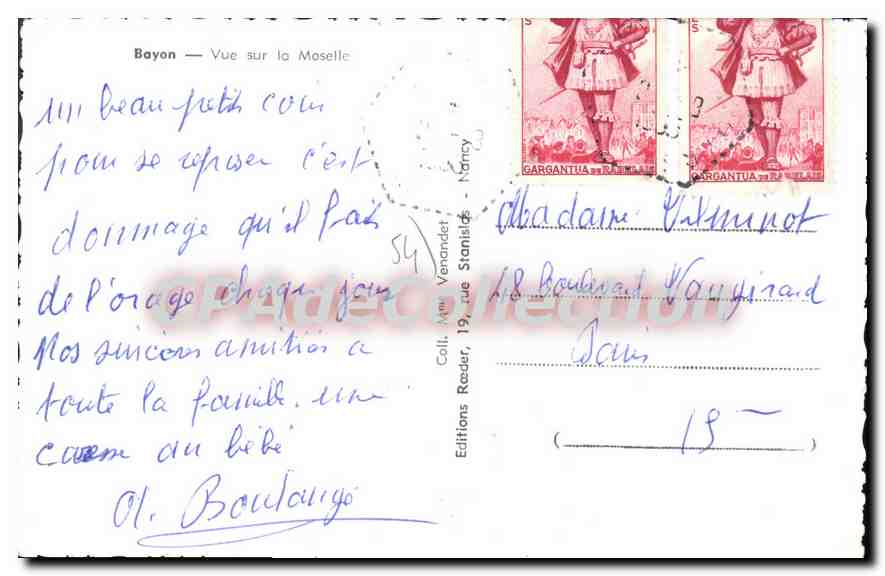 Bayon — Vue sur la Moselle
un beau petit coin
pour se reposer c'est
dommage qu'il fait
de l'orage chaque jour
Nos sincères amitiés a
toute la famille. une
au bébé
Boulangé
54
Coll. Mme Venandet
Editions Rœder, 19, rue Stanislas - Nancy
ES
GARGANTUA DE RABELAIS
S
GARGANTUA DE RABELAIS
Madame
48 Boulevard Vaugirard
Paris
( 15 )
CPAdeCollection